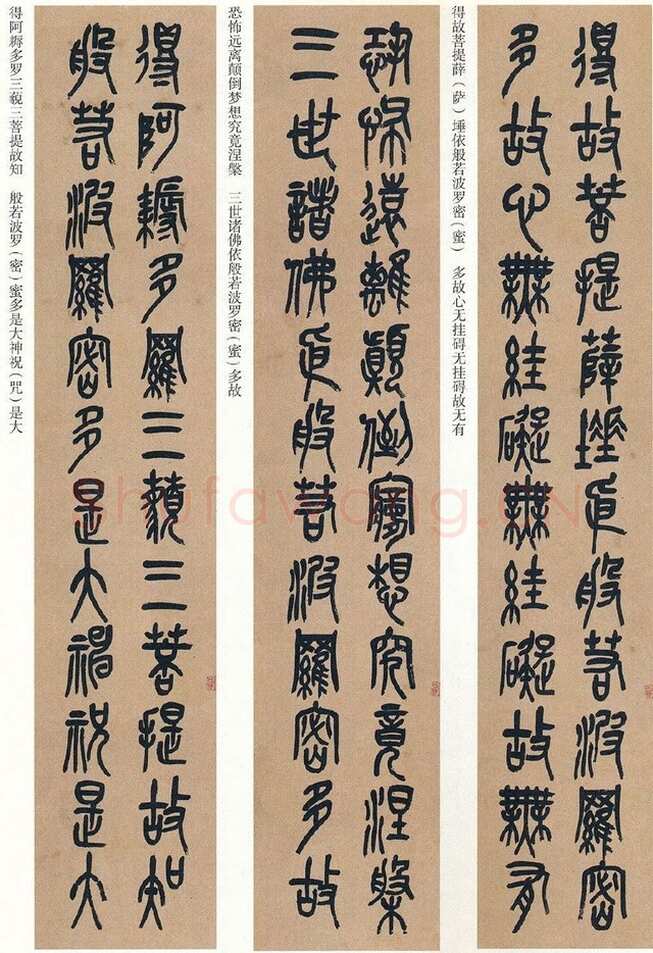 得故菩提薛埵依般若波羅密
多故心無絓礙無絓礙故無有
得故菩提薛（萨）埵依般若波罗密（蜜） 多故心无挂碍无挂碍故无有
恐怖遠離顛倒夢想究竟涅槃
三世諸佛依般若波羅密多故
恐怖远离颠倒梦想究竟涅槃 三世诸佛依般若波罗密（蜜）多故
得阿耨多羅三藐三菩提故知
般若波羅密多是大神祝是大
得阿耨多罗三藐三菩提故知 般若波罗（密）蜜多是大神祝（咒）是大
Shufawang.CN